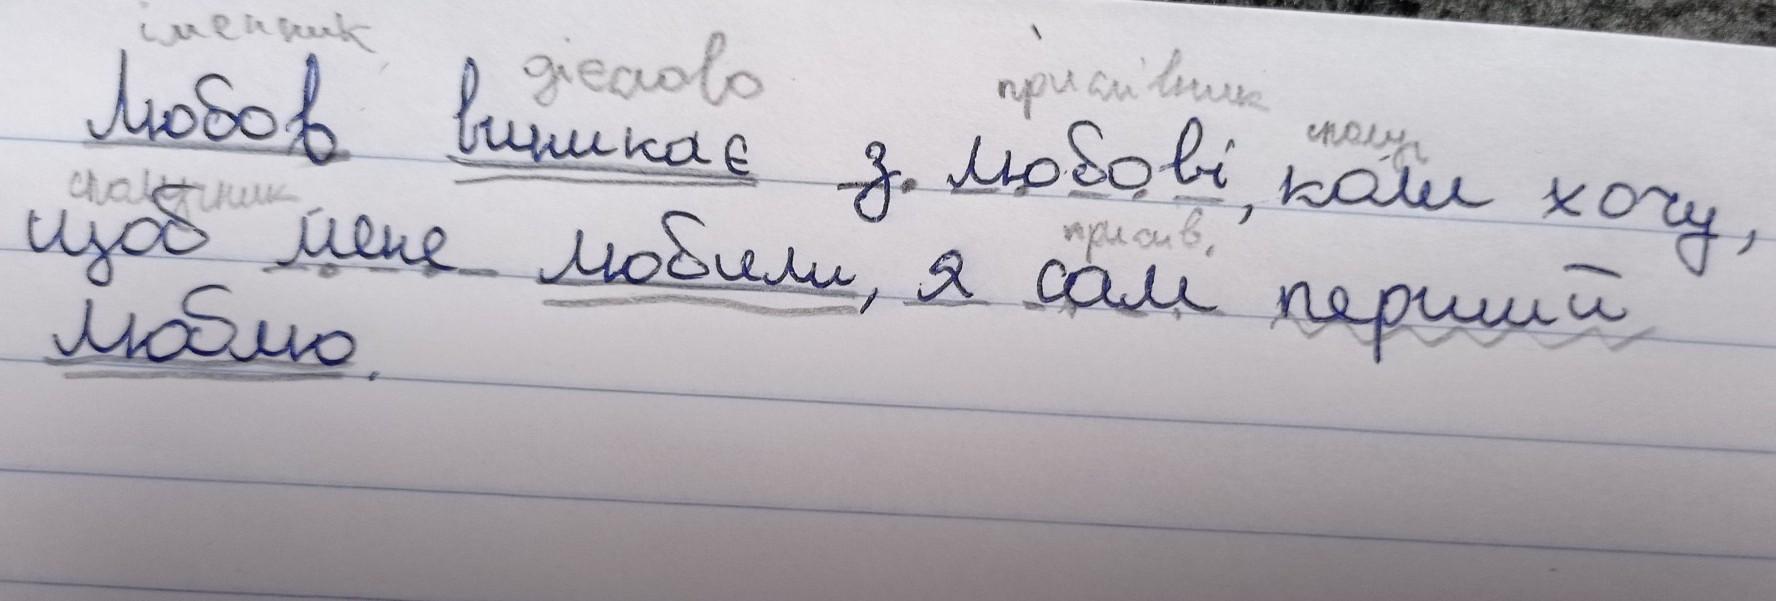 іменник дієслово прислівник
Любов виникає з любові, коли хочу,
сполучник сполуч присв.
щоб мене любили, я сам перший
люблю.